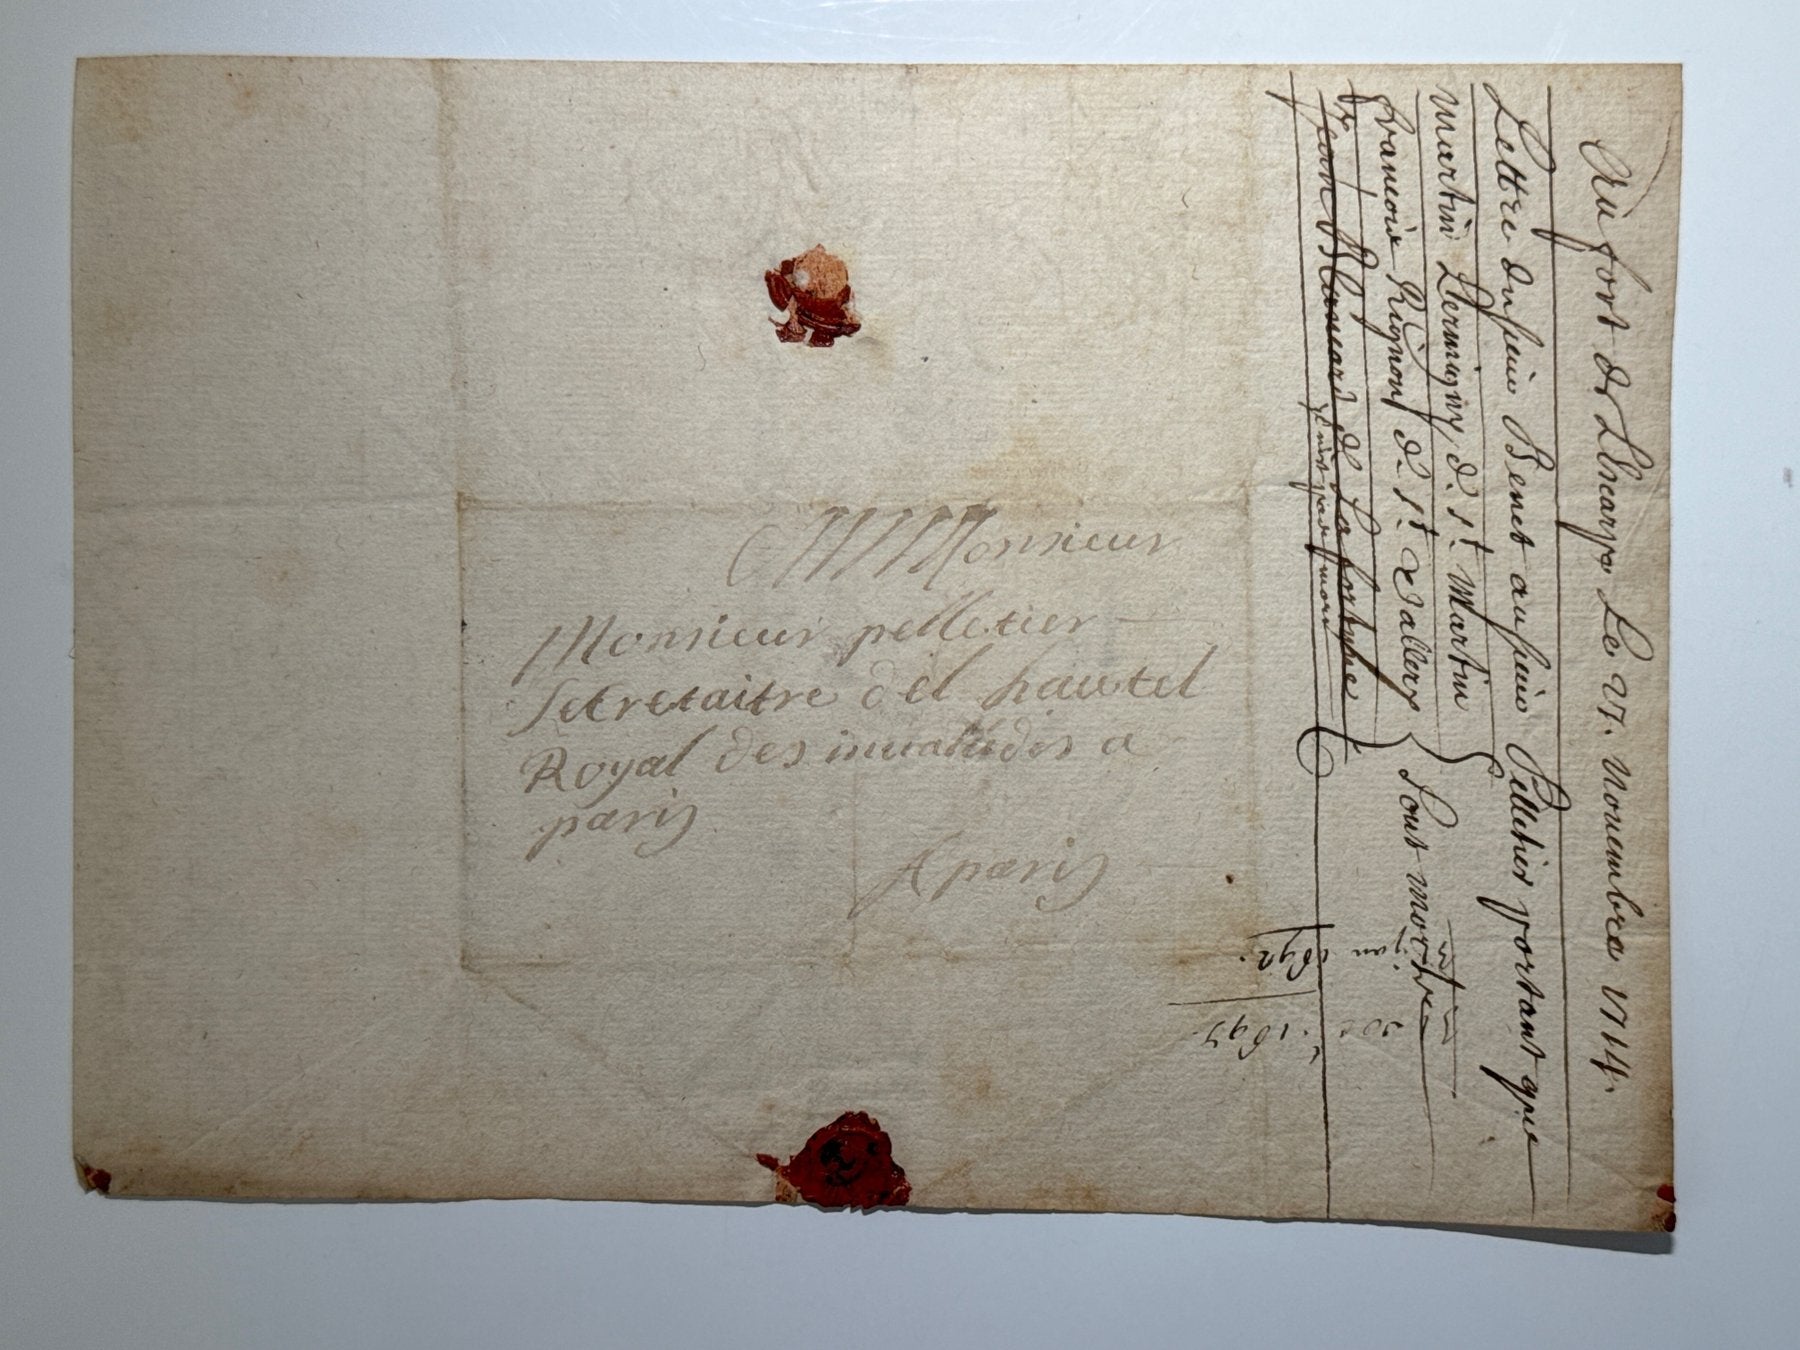 Monsieur
Monsieur pelletier
secretaitre del hautel
Royal des inualides a
paris
A paris
Au fort de Lhearpe Le 27. Nouembre 1714.
Lettre du sieur Benet au sieur Pelletier portant que
Martin Lermigny d. St. Martin
francois Rignon d. St. Vallery
Sont morts
et Jean Blanuard d. La fortune
n'est pas mort
jan 1692.
1697